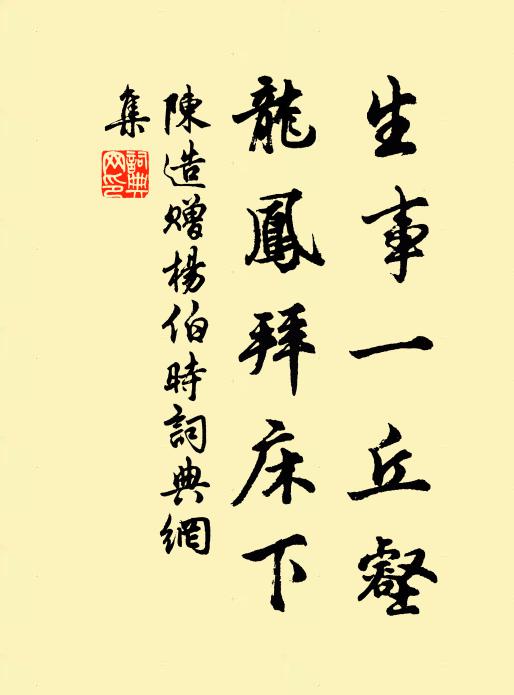 生事一丘壑
龍鳳拜床下
陳造贈楊伯時詞典網
集
詞典網印